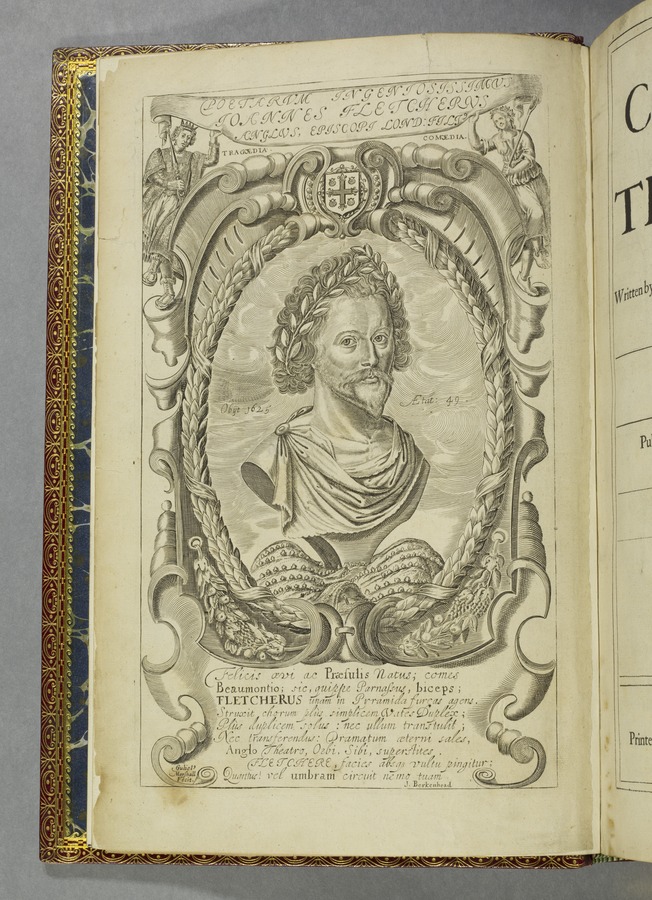 POETARUM INGENIOSISSIMUS
IOANNES FLETCHERUS
ANGLUS, EPISCOPI LOND: FILI9
TRAGŒDIA.
COMŒDIA.
Obyt 1625
Ætat: 49.
Felicis ævi ac Præsulis Natus; comes
Beaumontio; sic, quippe Parnassus, biceps;
FLETCHERUS unam in Pyramida furcas agens.
Struxit chorum plus simplicem Vates Duplex;
Plus duplicem solus: nec ullum transtulit;
Nec transferrendus: Dramatum æterni sales,
Anglo Theatro, Orbi, Sibi, superstites.
FLETCHERE, facies absq3 vultu pingitur;
Quantus! vel umbram circuit nemo tuam.
J. Berkenhead
Guliel9
Marshall
Fecit.
C
Written by
Pu
Printe